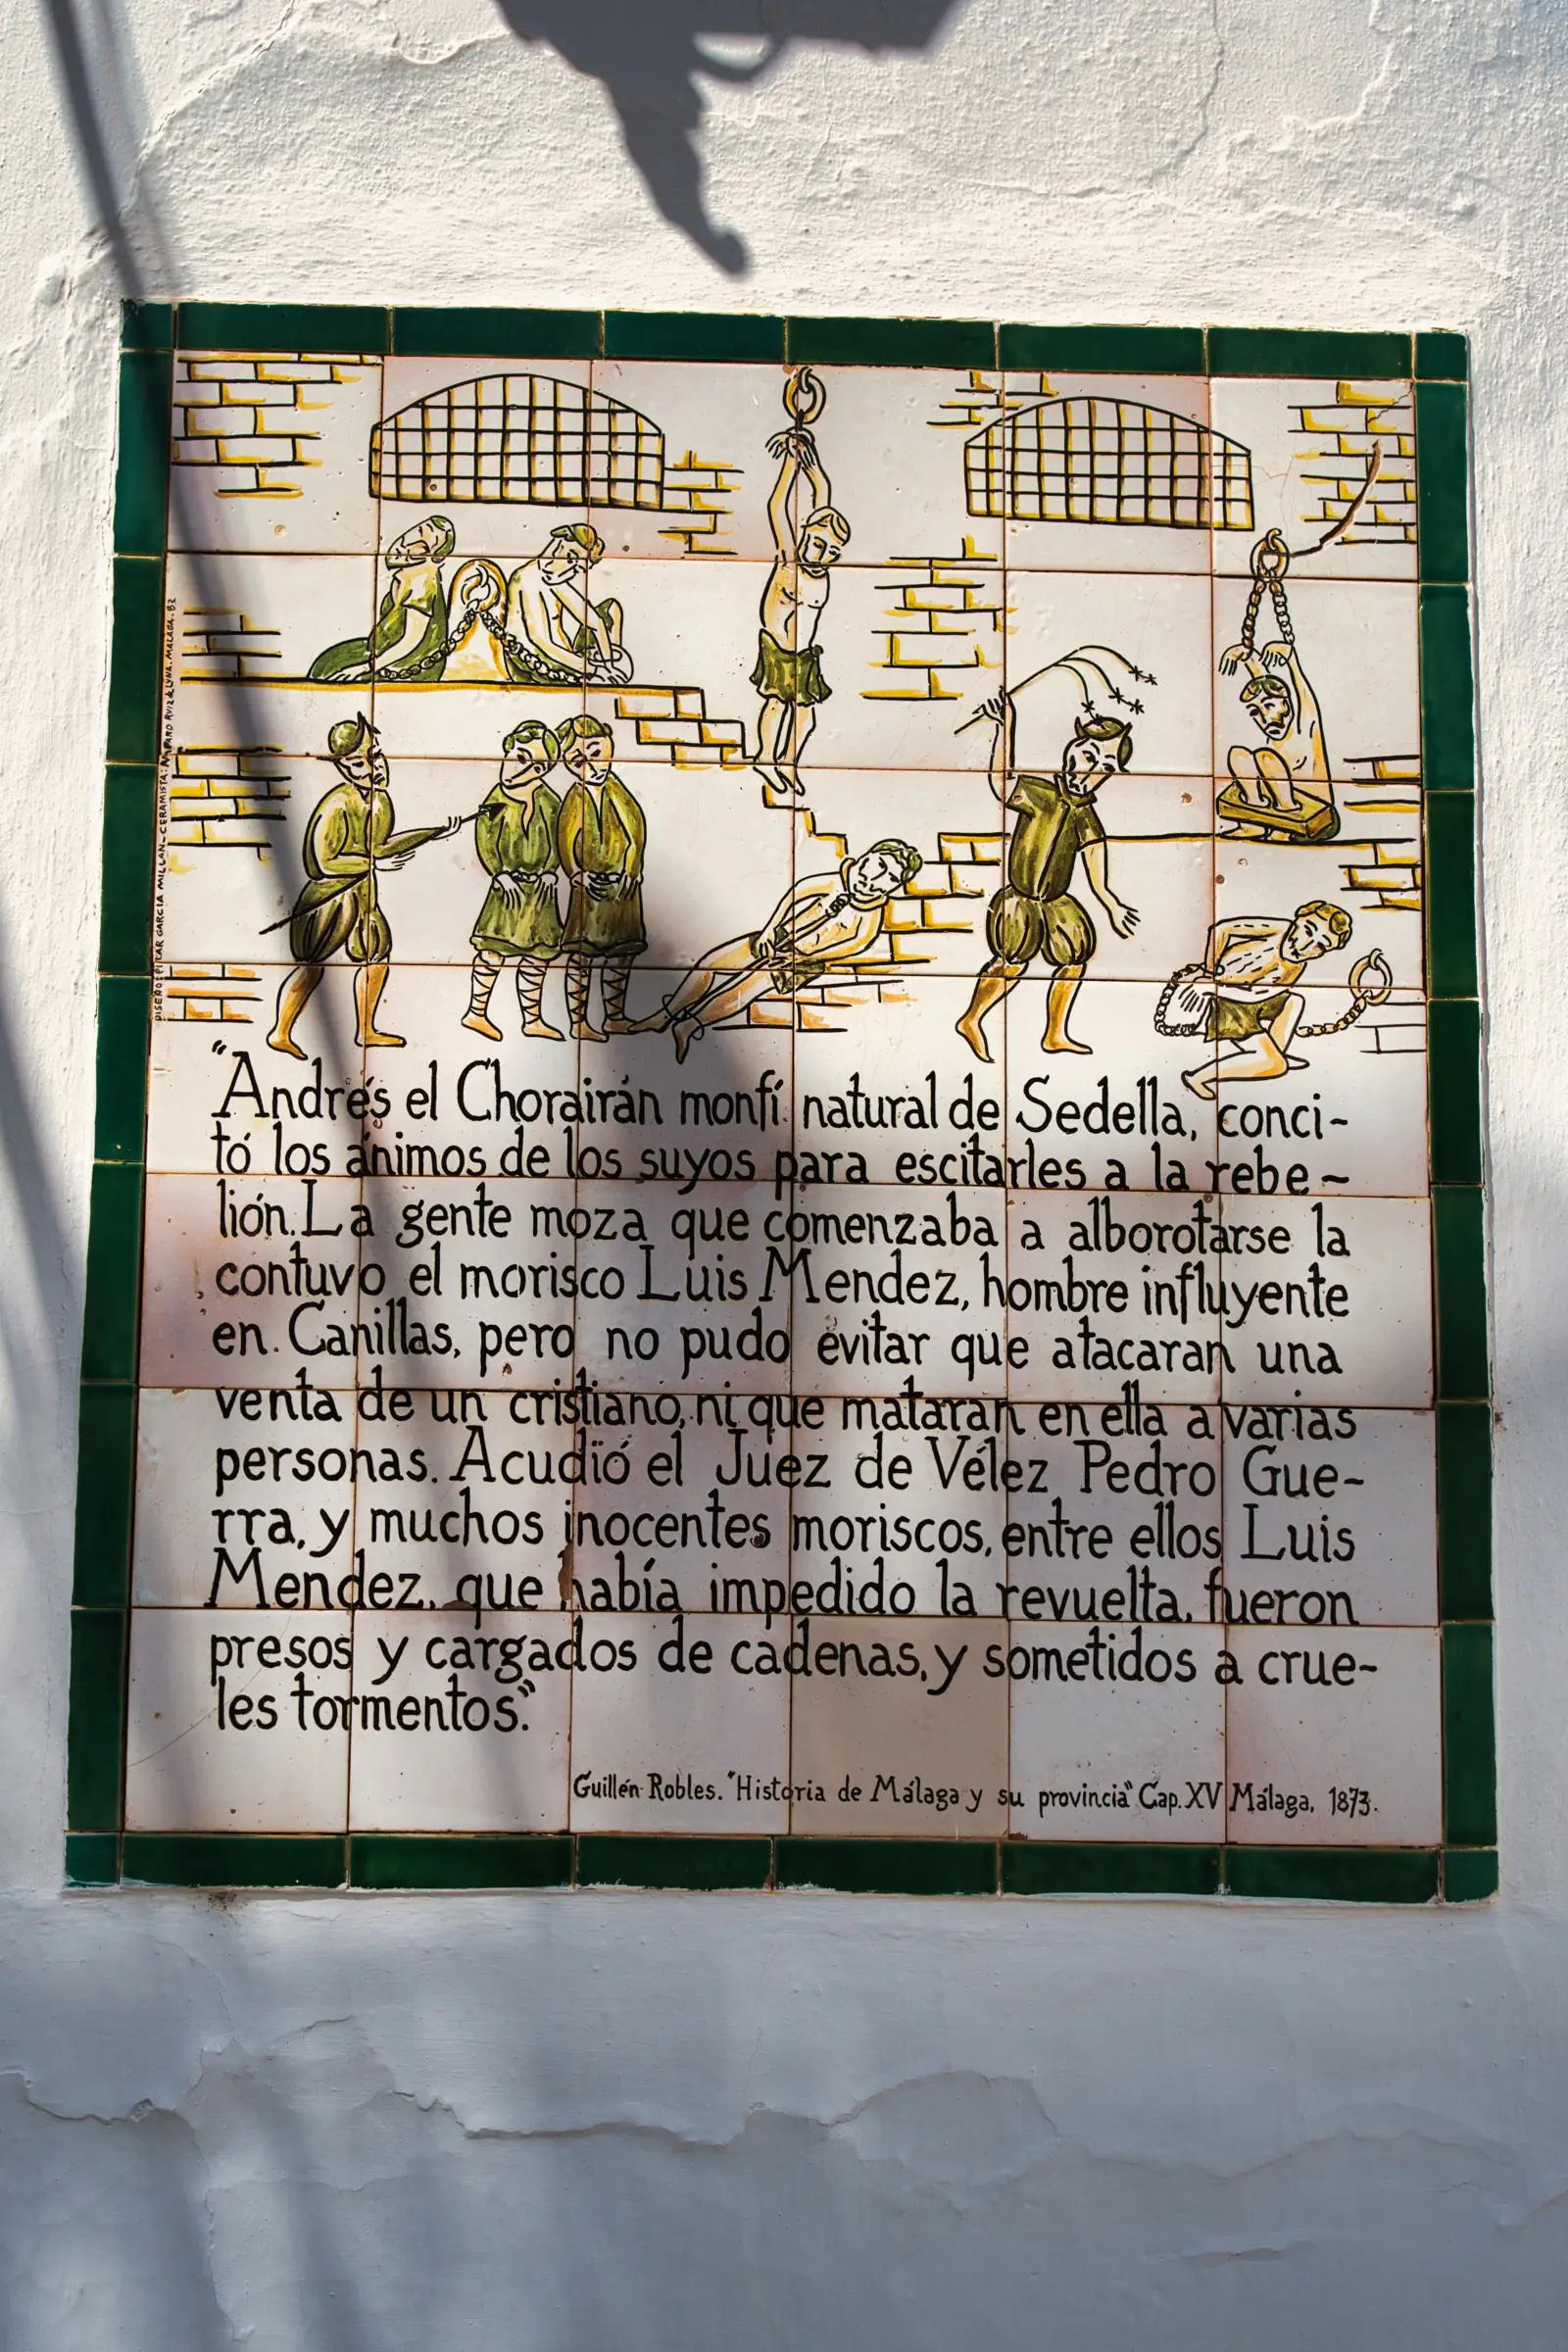 "Andrés el Chorairán monfí natural de Sedella, conci-
tó los ánimos de los suyos para escitarles a la rebe-
lión. La gente moza que comenzaba a alborotarse la
contuvo el morisco Luis Mendez, hombre influyente
en Canillas, pero no pudo evitar que atacaran una
venta de un cristiano, ni que mataran en ella a varias
personas. Acudió el Juez de Vélez Pedro Gue-
rra, y muchos inocentes moriscos, entre ellos Luis
Mendez, que había impedido la revuelta, fueron
presos y cargados de cadenas, y sometidos a crue-
les tormentos."
Guillén Robles. "Historia de Málaga y su provincia" Cap. XV Málaga, 1873.
DISEÑO: PILAR GARCIA MILLAN - CERAMISTA: AMPARO RUIZ de LUNA. MALAGA. 82